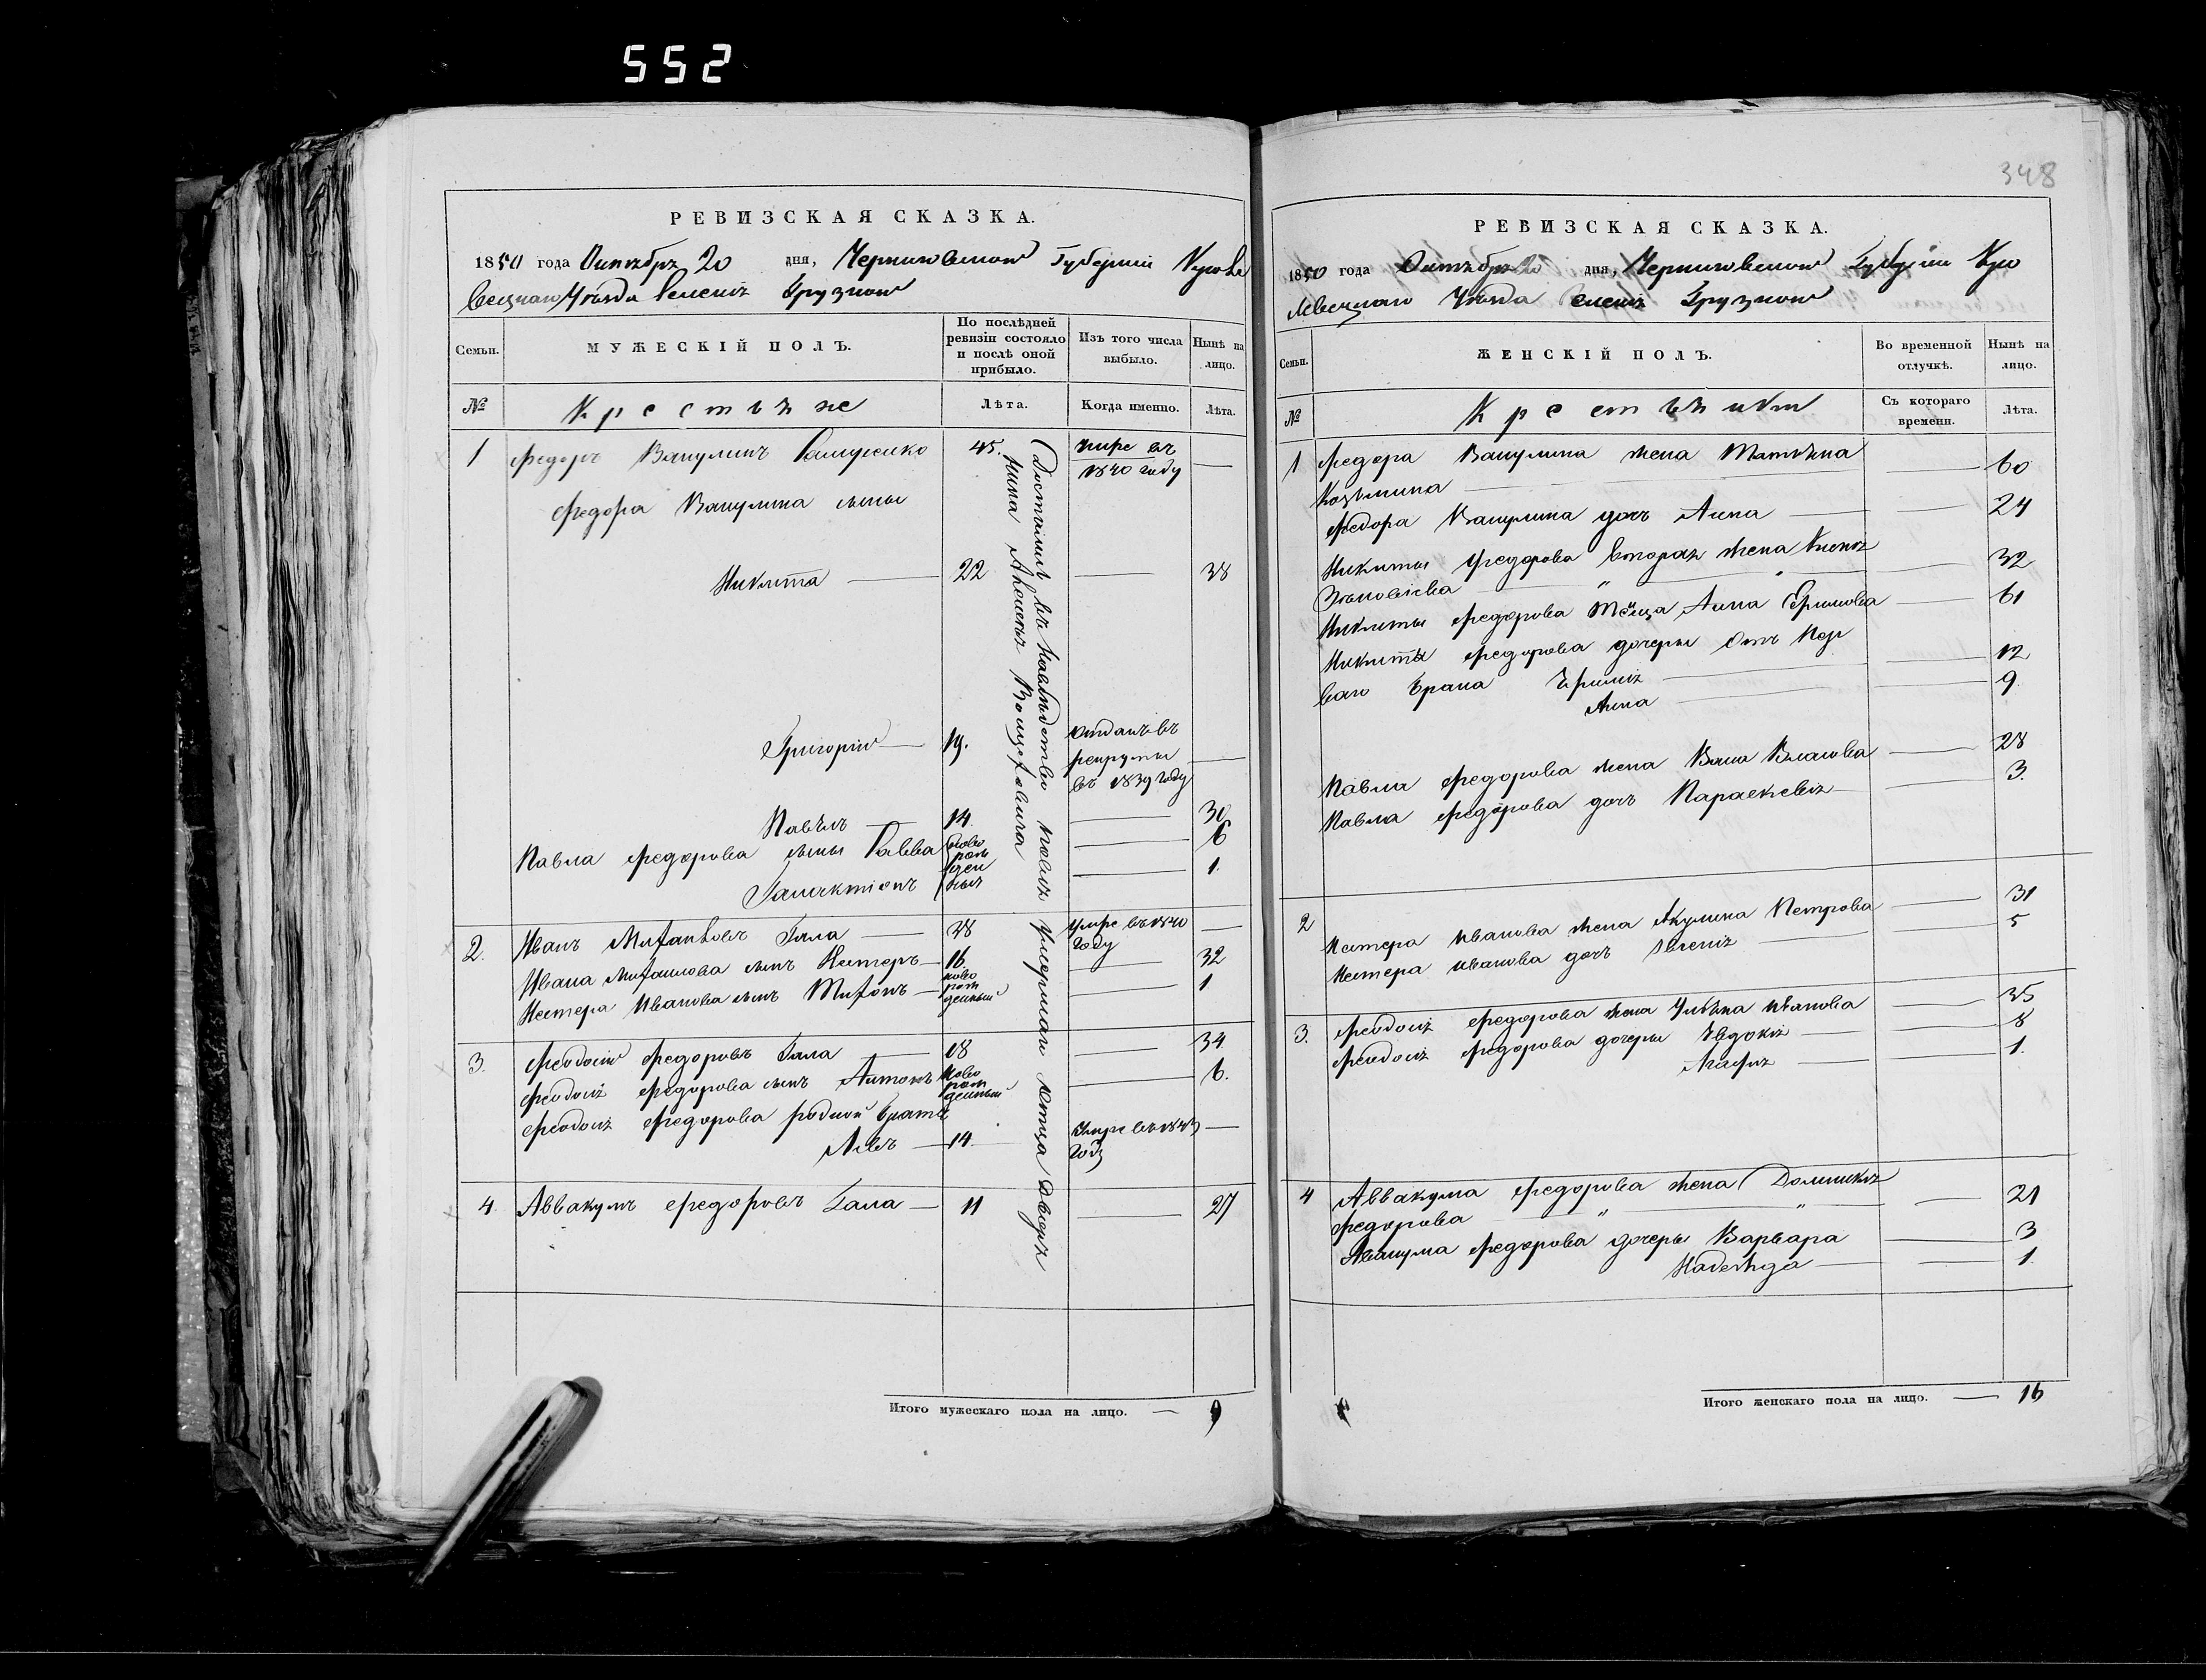 552
РЕВИЗСКАЯ СКАЗКА.
1850 года Октября 20 дня, Черниговской Губернии Кроле
вецкаго Уѣзда Селенія Грузкой
Семьи.
МУЖЕСКІЙ ПОЛЪ.
По послѣдней ревизіи состояло и послѣ оной прибыло.
Изъ того числа выбыло.
Нынѣ на лицо.
№
Крестьяне
Лѣта.
Когда именно.
Лѣта.
1 Федоръ Вакулинъ 45. умре въ 1840 году —
Федора Вакулина сыны
Никита — 22 — 38
Григорій — 19. отданъ въ рекруты въ 1839 году —
Павелъ — 14. — 30
Павла Федорова сыны Савва ново — 6
Галактіонъ рож ден ныя — 1.
2. Иванъ Михайловъ Гала — 38 умре въ 1840 году —
Ивана Михайлова сынъ Нестеръ — 16. — 32
Нестера Иванова сынъ Тихонъ — ново рож денный — 1
3. Феодосій Федоровъ Гала — 18 — 34
Феодосія Федорова сынъ Антонъ ново рож денный — 6.
Феодосія Федорова родной братъ
Левъ — 14. умре въ 1843 году —
4. Аввакумъ Федоровъ Гала — 11 — 27
Достались въ наслѣдство послѣ умершаго отца
Итого мужескаго пола на лицо. — 9
348
РЕВИЗСКАЯ СКАЗКА.
1850 года Октября 20 дня, Черниговской Губерніи Кро
левецкаго Уѣзда Селенія Грузкой
Семьи.
ЖЕНСКІЙ ПОЛЪ.
Во временной отлучкѣ.
Нынѣ на лицо.
№
Крестьянки
Съ котораго времени.
Лѣта.
1 Федора Вакулина жена Татьяна — 60
Козьмина —
Федора Вакулина дочь Анна — — 24
Никиты Федорова вторая жена Ксенія
Зѣновіева — 32
Никиты Федорова тёща Анна Ефимова — 61
Никиты Федорова дочери отъ пер
ваго брака Ефимія — — 12
Анна — — 9.
Павла Федорова жена Власова — 28
Павла Федорова дочь Параскевія — 3.
2 Нестера Иванова жена Акулина Петрова — 31
Нестера Иванова дочь Евгенія — 5
3. Феодосія Федорова жена Ульяна Иванова — 35
Феодосія Федорова дочери Евдокія — 8
Агафія — — 1.
4 Аввакума Федорова жена Домникія
Федорова — " — " — 21
Авакума Федорова дочери Варвара — 3
Надежда — — 1.
Итого женскаго пола на лицо. — 16